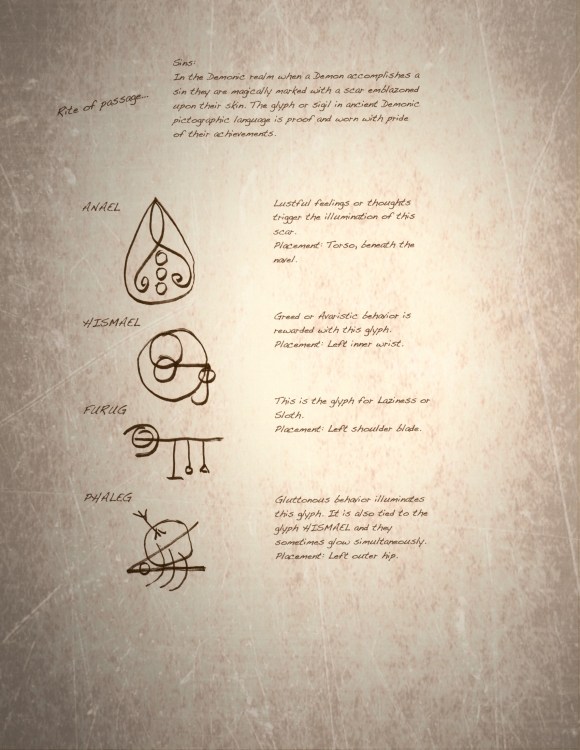 Sins:
Rite of passage...
In the Demonic realm when a Demon accomplishes a
sin they are magically marked with a scar emblazoned
upon their skin. The glyph or sigil in ancient Demonic
pictographic language is proof and worn with pride
of their achievements.
ANAEL
Lustful feelings or thoughts
trigger the illumination of this
scar.
Placement: Torso, beneath the
navel.
HISMAEL
Greed or Avaristic behavior is
rewarded with this glyph.
Placement: Left inner wrist.
FURUG
This is the glyph for Laziness or
Sloth.
Placement: Left shoulder blade.
PHALEG
Gluttonous behavior illuminates
this glyph. It is also tied to the
glyph HISMAEL and they
sometimes glow simultaneously.
Placement: Left outer hip.